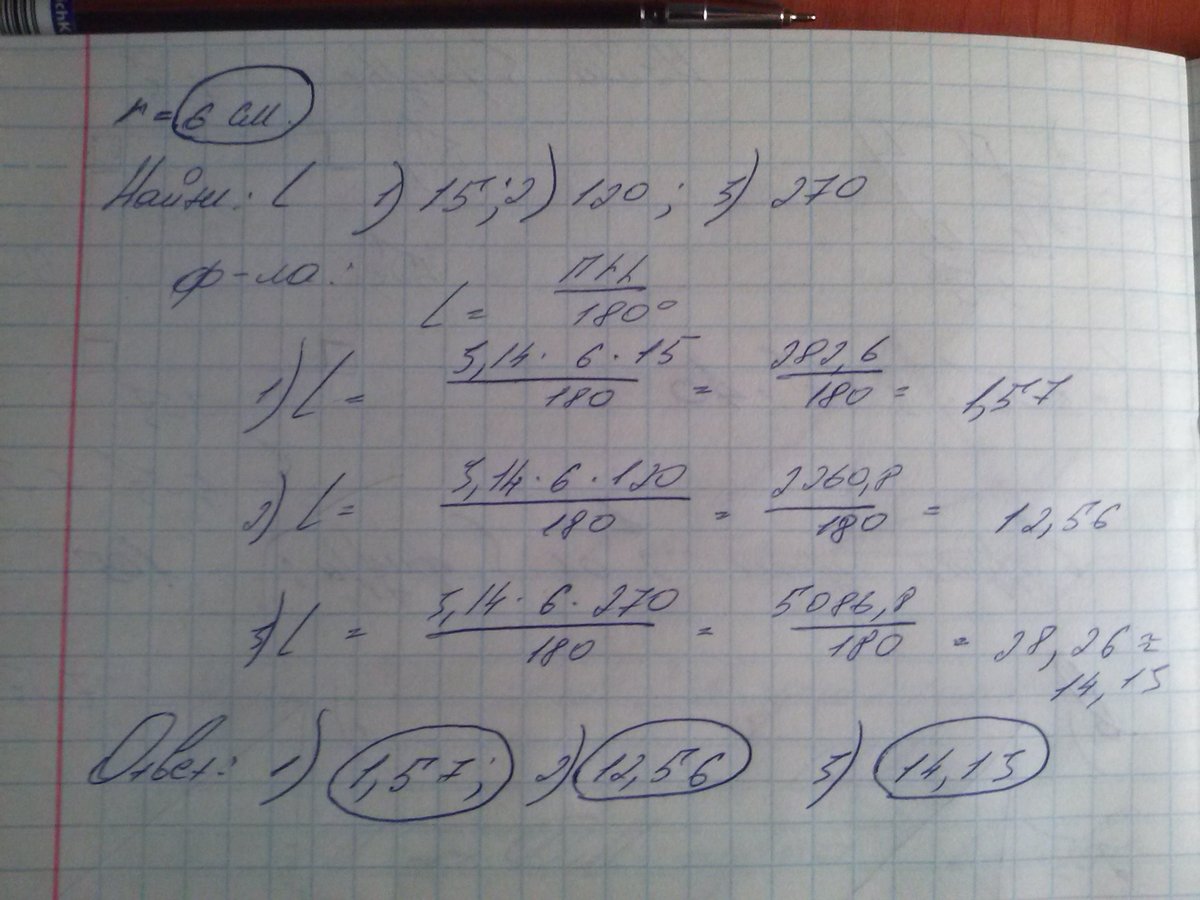 chK
r = 6 см.
Найти: L 1) 15; 2) 120; 3) 270
ф-ла:
L = πrL / 180°
1) L = 3,14 · 6 · 15 / 180 = 282,6 / 180 = 1,57
2) L = 3,14 · 6 · 120 / 180 = 2260,8 / 180 = 12,56
3) L = 3,14 · 6 · 270 / 180 = 5086,8 / 180 = 28,26 =
14,13
Ответ: 1) 1,57; 2) 12,56 3) 14,13